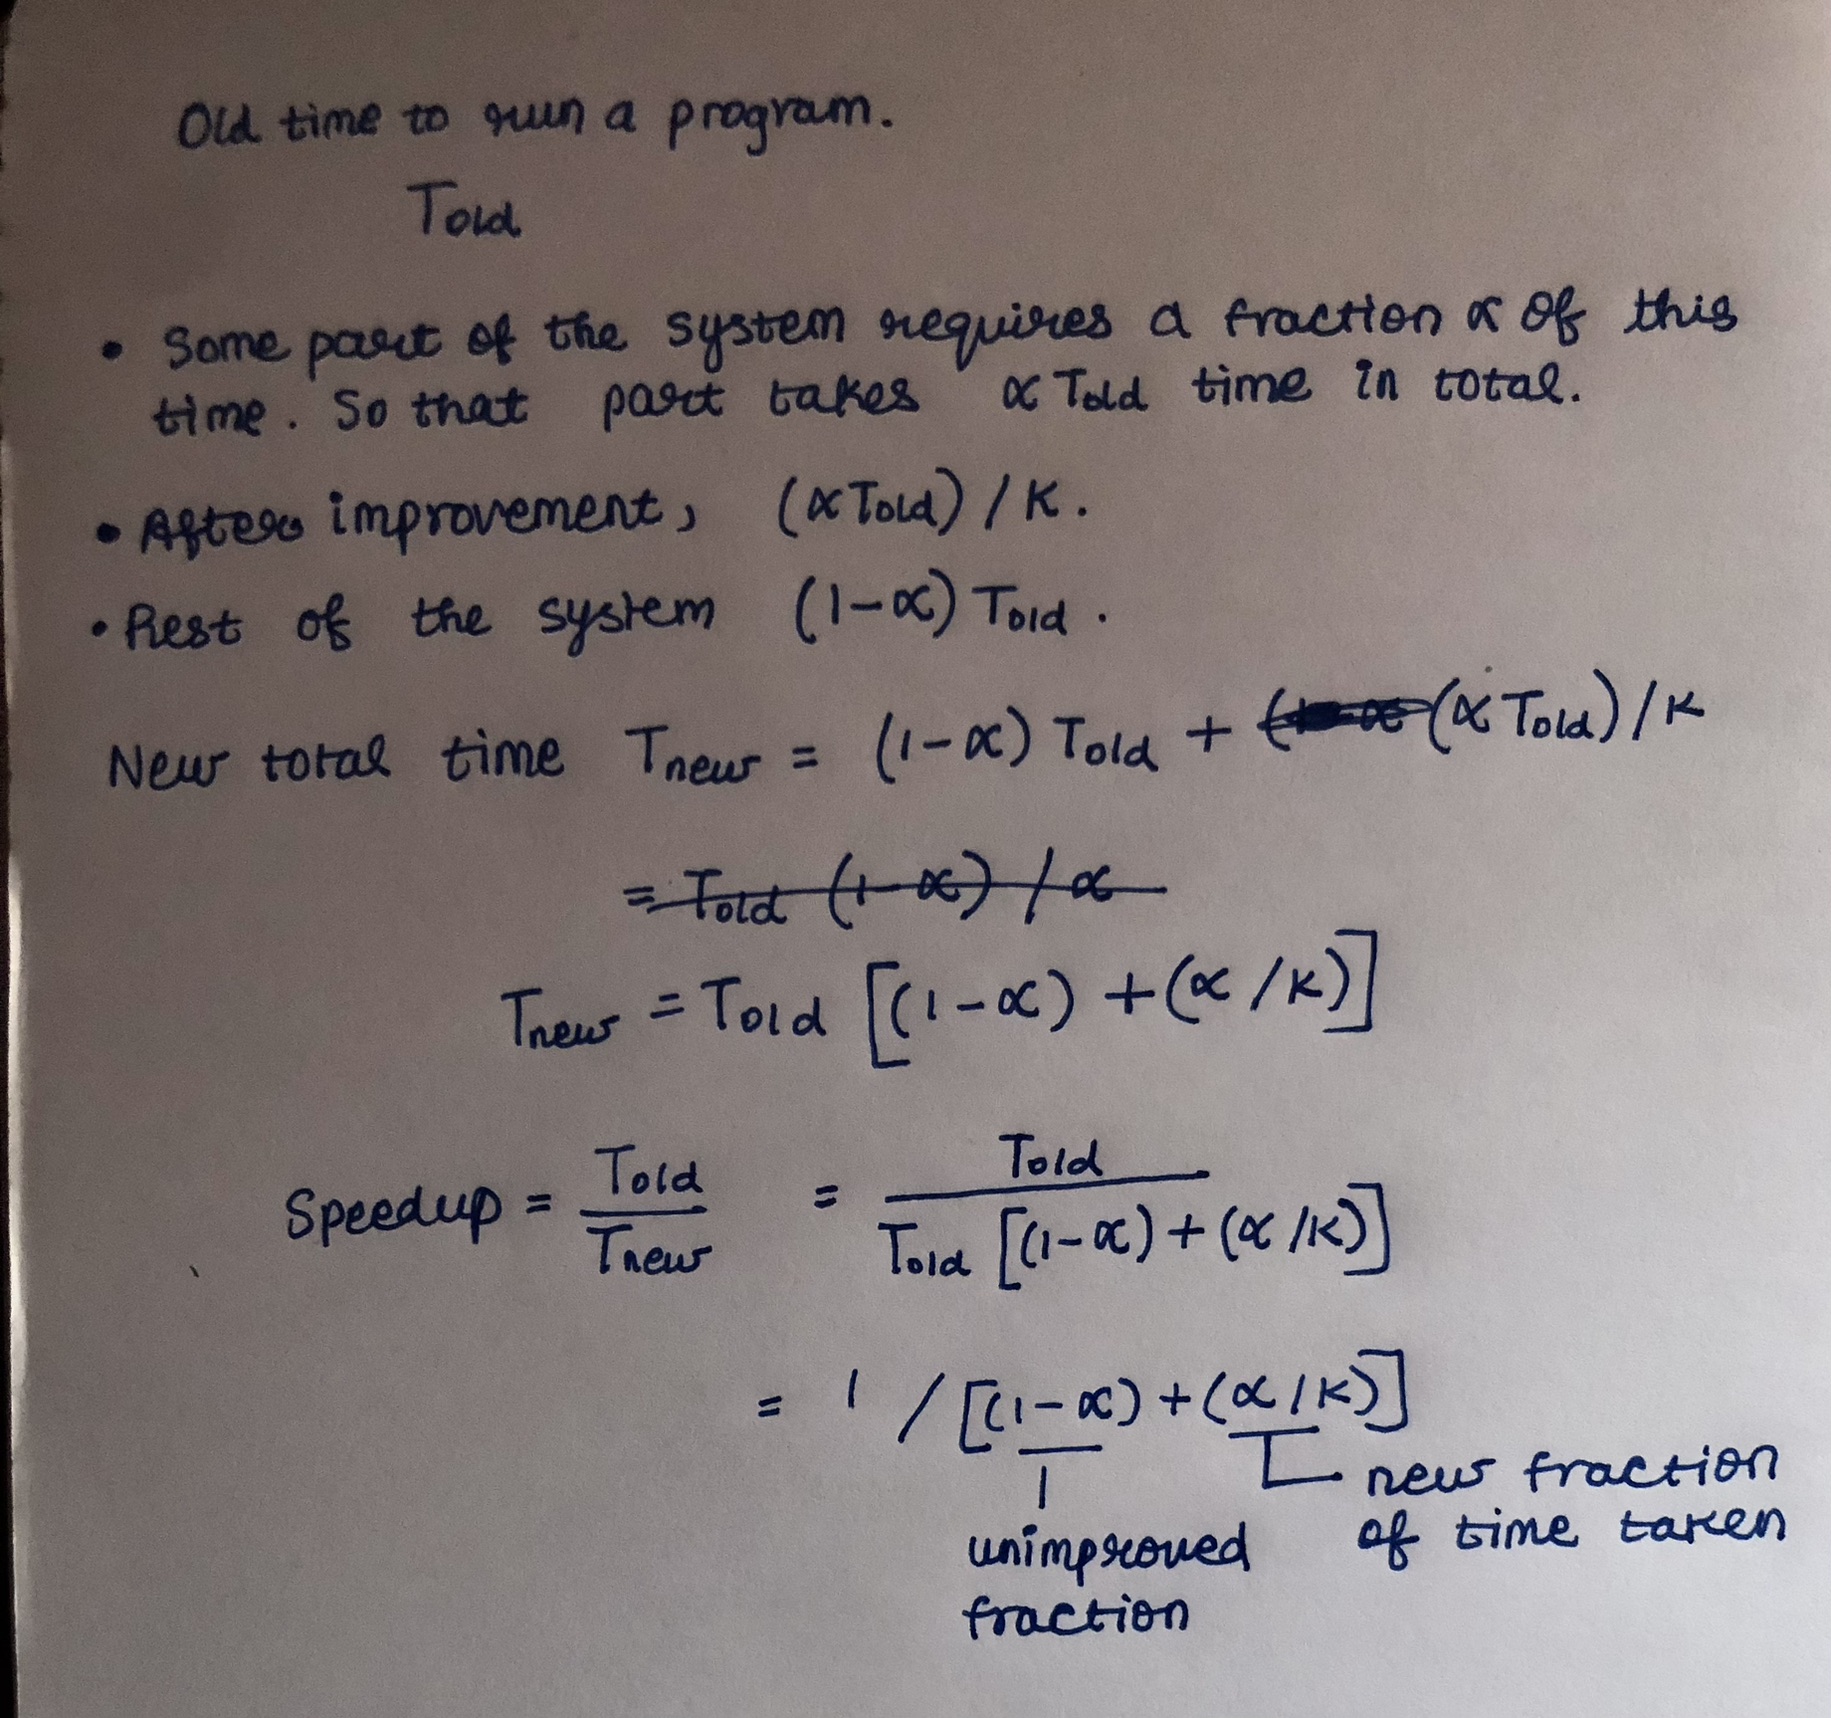 Old time to run a program.
Told
• Some part of the system requires a fraction α of this
time. So that part takes α Told time in total.
• After improvement, (αTold) / K.
• Rest of the system (1-α) Told.
New total time Tnew = (1-α) Told + (αTold)/K
= Told (1-α) / α
Tnew = Told [(1-α) + (α/K)]
Speedup = Told / Tnew = Told / Told [(1-α) + (α/K)]
= 1 / [(1-α) + (α/K)]
new fraction
of time taken
unimproved
fraction